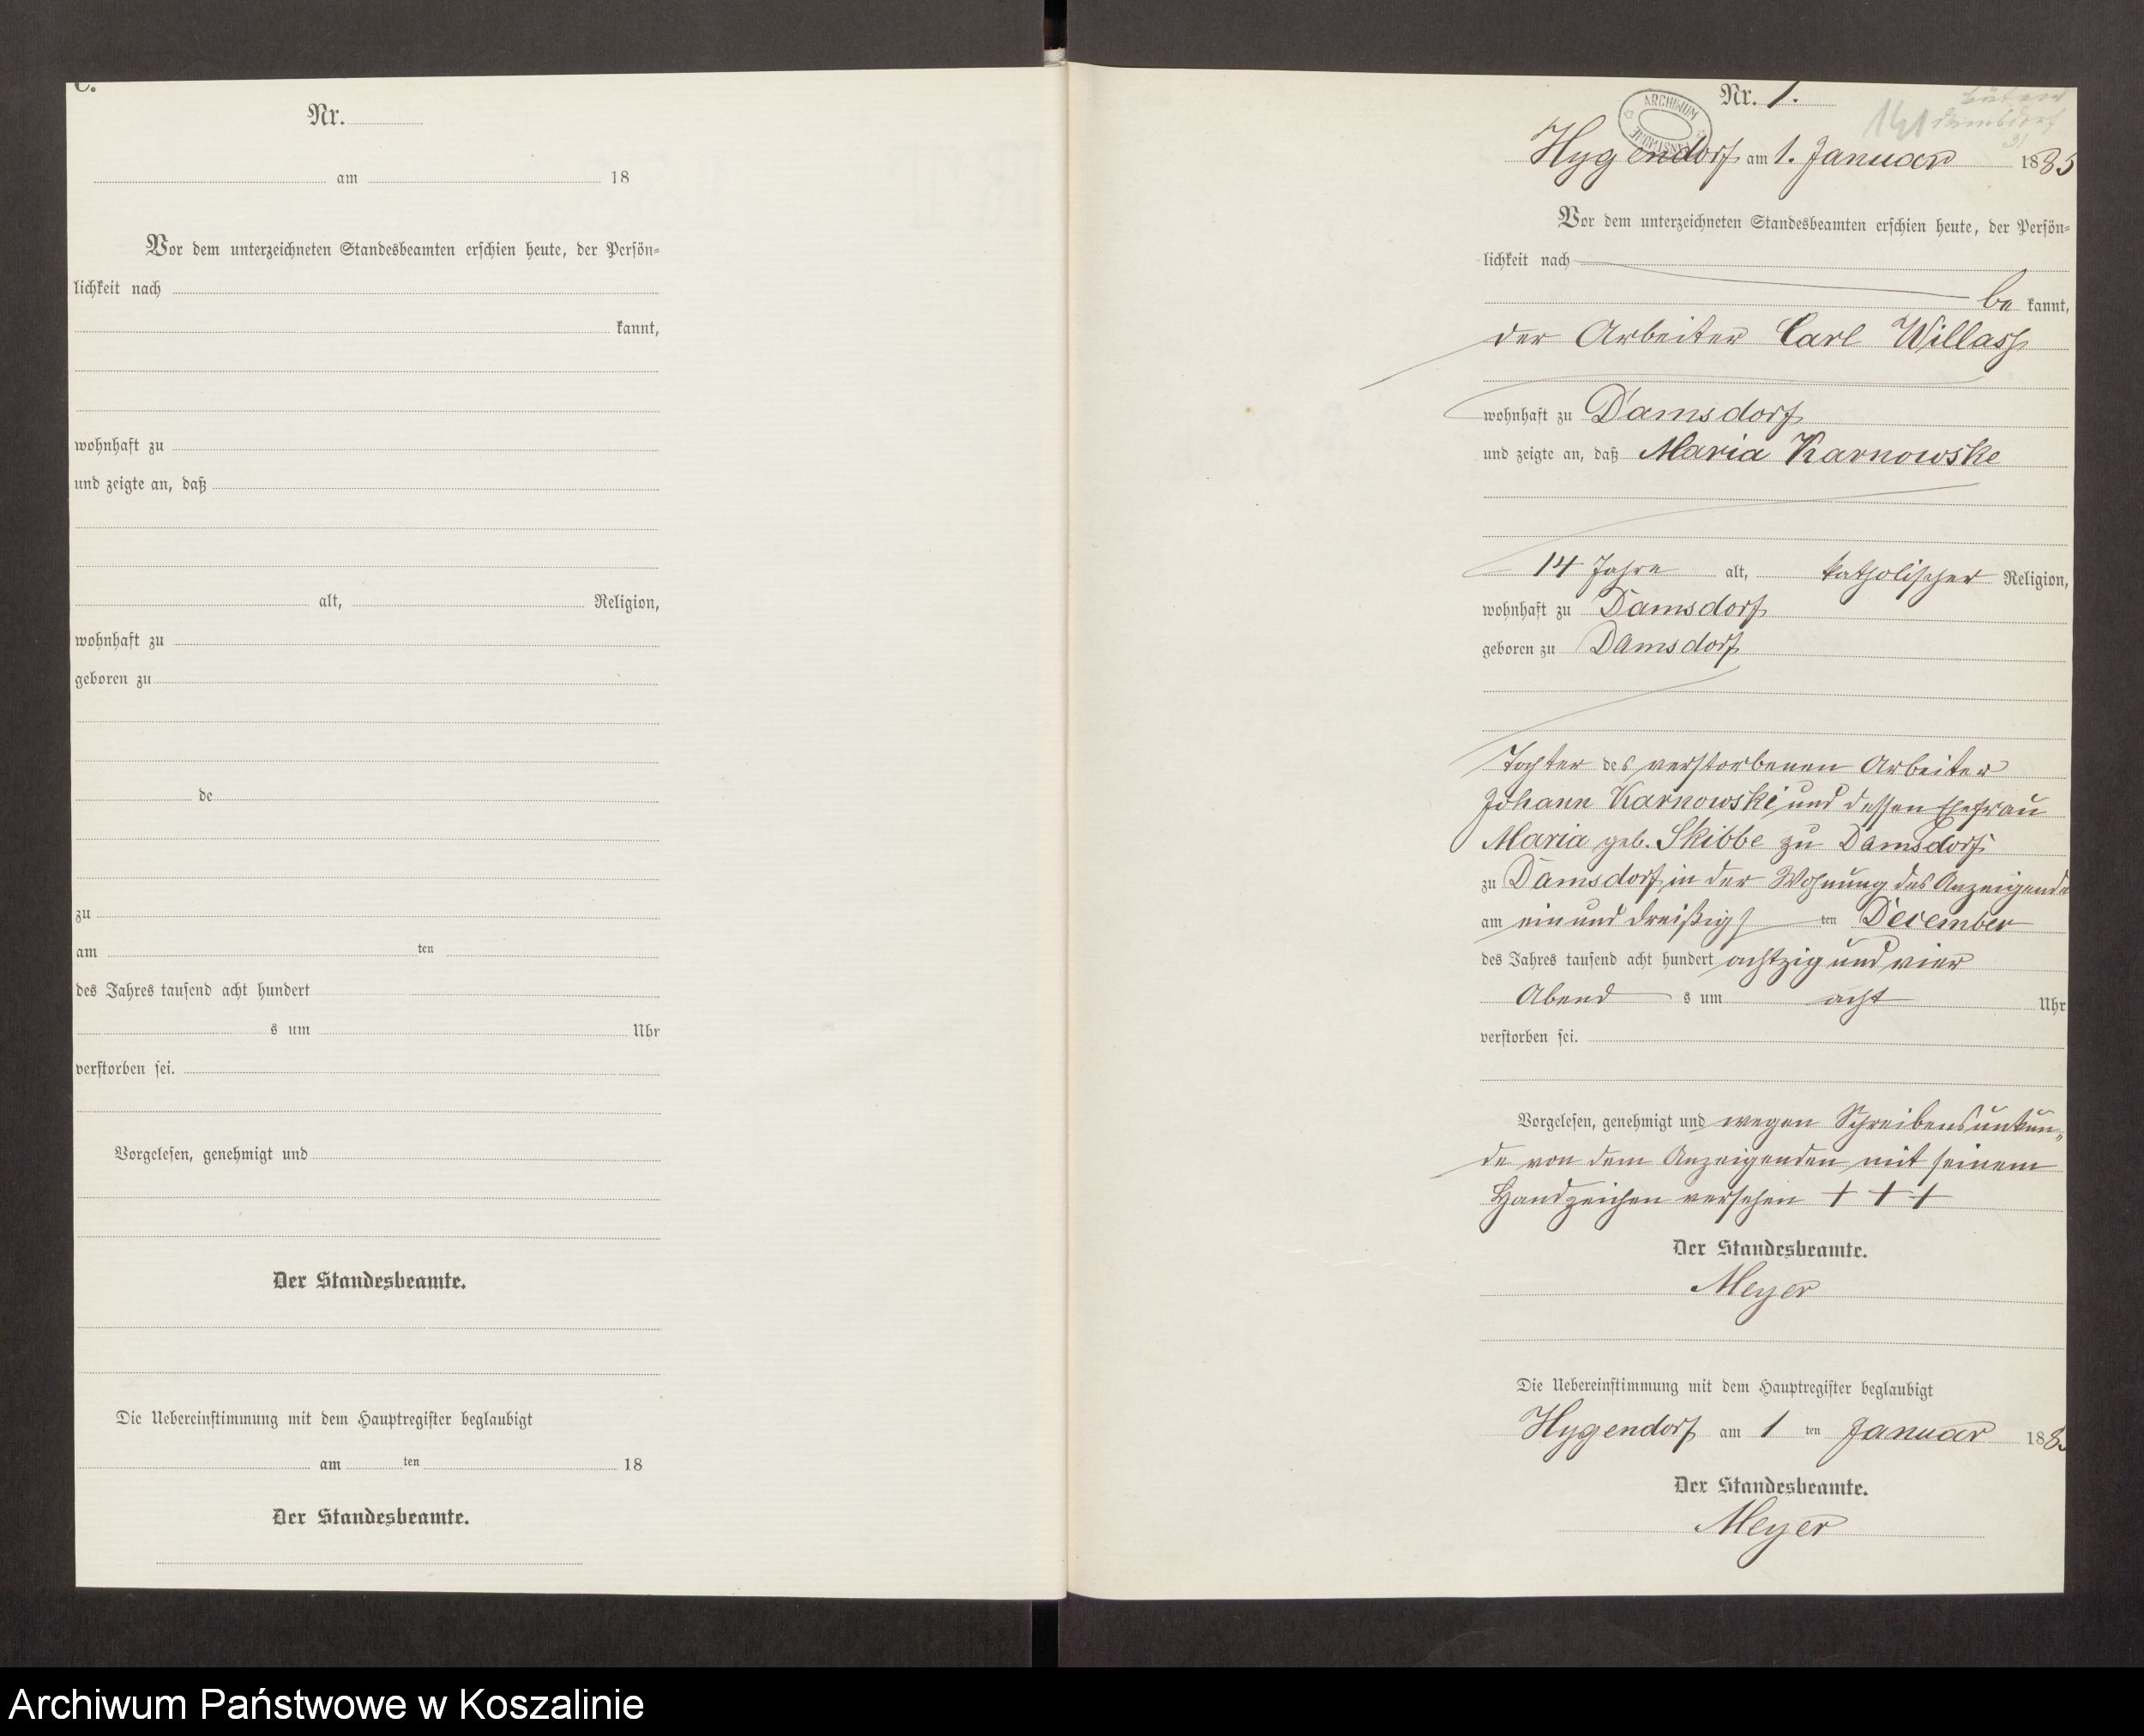 C.
Nr.
am 18
Vor dem unterzeichneten Standesbeamten erschien heute, der Persön=
lichkeit nach
kannt,
wohnhaft zu
und zeigte an, daß
alt, Religion,
wohnhaft zu
geboren zu
de
zu
am ten
des Jahres tausend acht hundert
s um Uhr
verstorben sei.
Vorgelesen, genehmigt und
Der Standesbeamte.
Die Uebereinstimmung mit dem Hauptregister beglaubigt
am ten 18
Der Standesbeamte.
Nr. 1.
ARCHIWUM
Damsdorf
Hygendorf am 1. Januar 1885
Vor dem unterzeichneten Standesbeamten erschien heute, der Persön=
lichkeit nach
be kannt,
der Arbeiter Carl Willass
wohnhaft zu Damsdorf
und zeigte an, daß Maria Karnowske
14 Jahre alt, katholischer Religion,
wohnhaft zu Damsdorf
geboren zu Damsdorf
Tochter des verstorbenen Arbeiter
Johann Karnowski und dessen Ehefrau
Maria geb. Skibbe zu Damsdorf
zu Damsdorf in der Wohnung des Anzeigende
am ein und dreißigs ten December
des Jahres tausend acht hundert achtzig und vier
Abend s um acht Uhr
verstorben sei.
Vorgelesen, genehmigt und wegen Schreibensunkun„
de von dem Anzeigenden mit seinem
Handzeichen versehen + + +
Der Standesbeamte.
Meyer
Die Uebereinstimmung mit dem Hauptregister beglaubigt
Hygendorf am 1 ten Januar 188
Der Standesbeamte.
Meyer
Archiwum Państwowe w Koszalinie